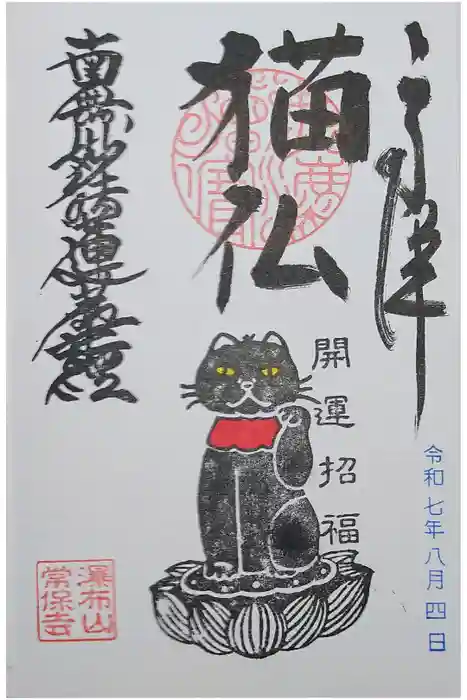 奉拝
猫仏
南無妙法蓮華経
開運招福
令和七年八月四日
瀑布山
常保寺